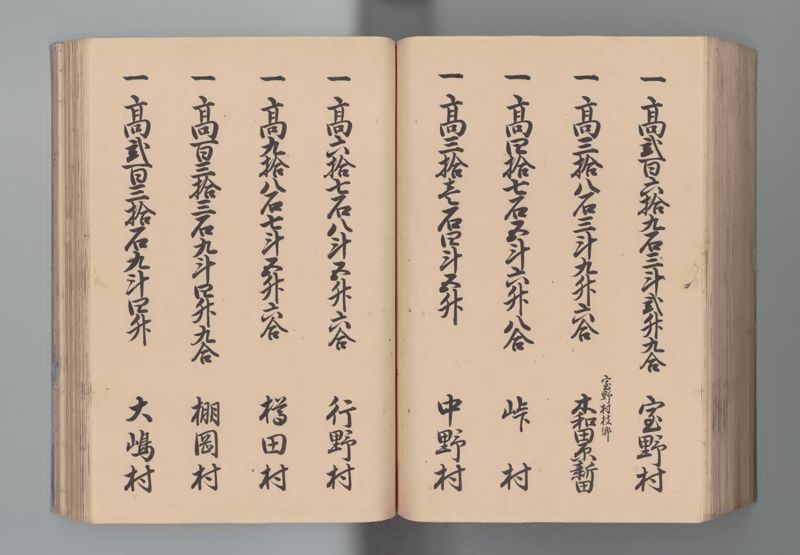 一 高弐百六拾九石三斗弐升九合 宝野村
一 高三拾八石三斗九升六合 宝野村枝郷 木和田原新田
一 高四拾七石五斗六升八合 峠村
一 高三拾壱石四斗五升 中野村
一 高六拾七石八斗五升六合 行野村
一 高九拾八石七斗五升六合 樽田村
一 高百三拾三石九斗四升九合 棚岡村
一 高弐百三拾石九斗四升 大嶋村